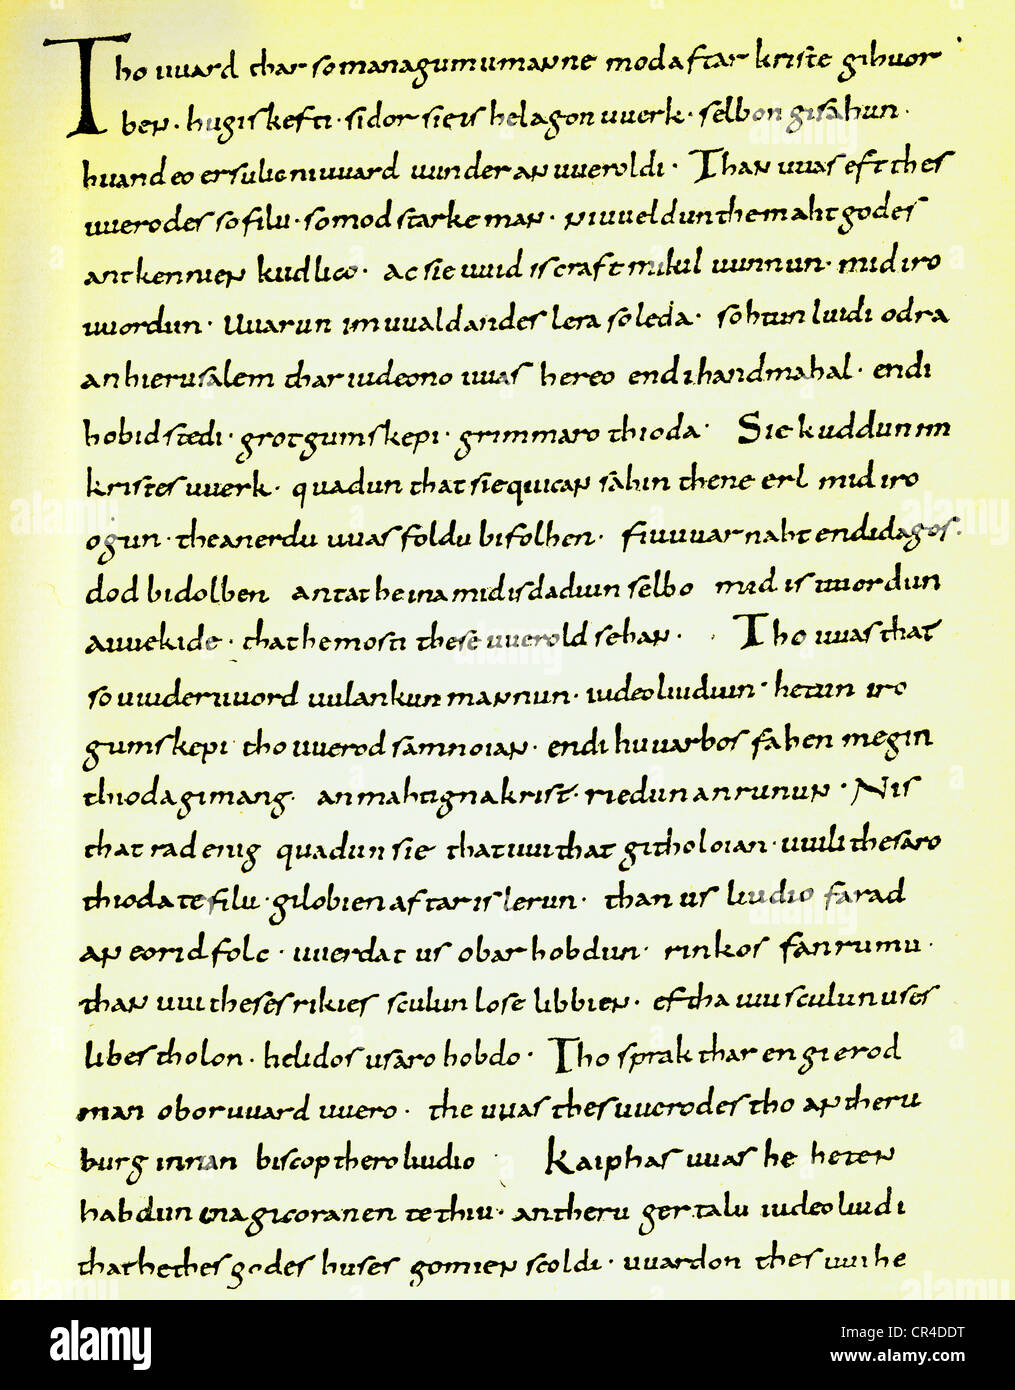 Tho uuard thar so managumu manne mod aftar kriste gihuor
ben · hugiskefti · sidor sie is helagon uuerk · selbon gisahun ·
huand eo er sulic ni uuard uunder an uueroldi · Than uuas eft thes
uuerodes so filu · so modstarke man · ni uueldun the maht godes
antkennien kudlico · ac sie uuid is craft mikil uunnun · mid iro
uuordun · Uuarun im uualdandes lera so leda · sohtun im luidi odra
an hierusalem thar iudeono uuas hereo endi handmahal · endi
hobidstedi · grot gumskepi · grimmaro thioda · Sie kuddun im
kristes uuerk · quadun that sie quican sahin thene erl mid iro
ogun · the an erdu uuas foldu bifolhen · fiuuuar naht endi dagos ·
dod bidolben antat he ina mid is dadiun selbo mid is uuordun
auuekide · that he mosti these uuerold sehan · Tho uuas that
so uuideruuord uulankun mannun · iudeo liudiun · hetun iro
gumskepi tho uuerod samnoian · endi huuarbos fahen megin
thioda gimang · an mahtigna krist · riedun an runun · Nis
that rad enig quadun sie that uui that githoloian · uuili thesaro
thioda te filu · gilobien aftar is lerun · than us liudio farad
an eoridfolc · uuerdat us obarhobdun · rinkos fan rumu ·
than uui theses rikies sculun lose libbien · eftha uui sculun uses
libes tholon · helidos usaro hobdo · Tho sprak thar en gierod
man obor uuard uuero · the uuas thes uuerodes tho an theru
burg innan biscop thero liudio Kaiphas uuas he heten
habdun ina gicoranen te thiu · an theru gertalu iudeo liudi
that he thes godes huses gomien scoldi · uuardon thes uuihe
alamy
Image ID: CR4DDT
www.alamy.com